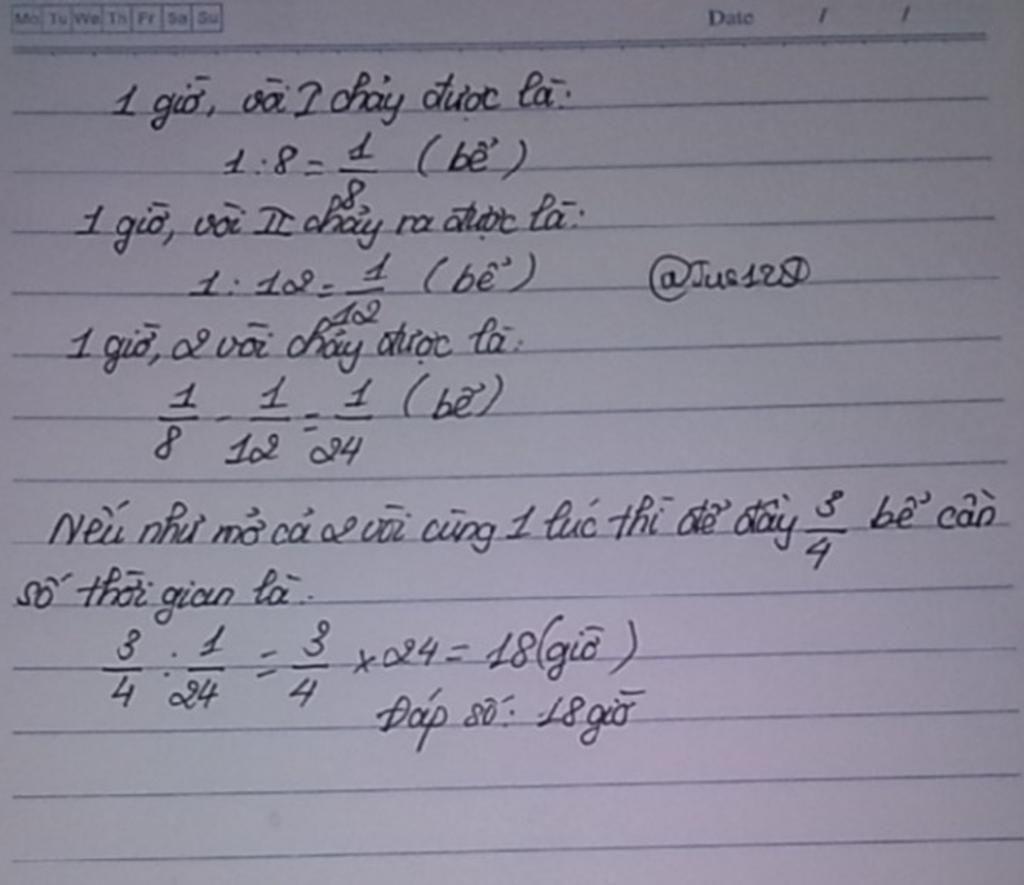 Mo Tu We Th Fr Sa Su
Date / /
1 giờ, vòi I chảy được là:
1 : 8 = 1/8 (bể)
1 giờ, vòi II chảy ra được là:
1 : 12 = 1/12 (bể)
@Jus128
1 giờ, 2 vòi chảy được là:
1/8 - 1/12 = 1/24 (bể)
Nếu như mở cả 2 vòi cùng 1 lúc thì để đầy 3/4 bể cần
số thời gian là:
3/4 : 1/24 = 3/4 × 24 = 18 (giờ)
Đáp số: 18 giờ